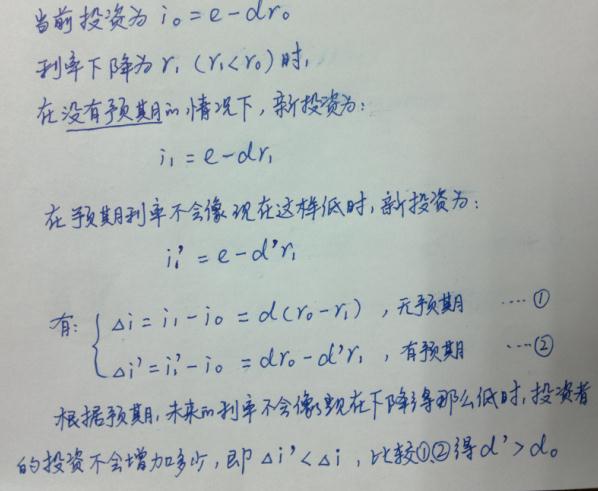 当前投资为 i₀ = e - dr₀
利率下降为 r₁ (r₁<r₀) 时,
在没有预期的情况下, 新投资为:
i₁ = e - dr₁
在预期利率不会像现在这样低时, 新投资为:
i₁' = e - d'r₁
有: { Δi = i₁ - i₀ = d(r₀ - r₁) , 无预期 ····①
Δi' = i₁' - i₀ = dr₀ - d'r₁ , 有预期 ····②
根据预期, 未来的利率不会像现在下降得那么低时, 投资者
的投资不会增加多少, 即 Δi' < Δi , 比较①②得 d' > d。